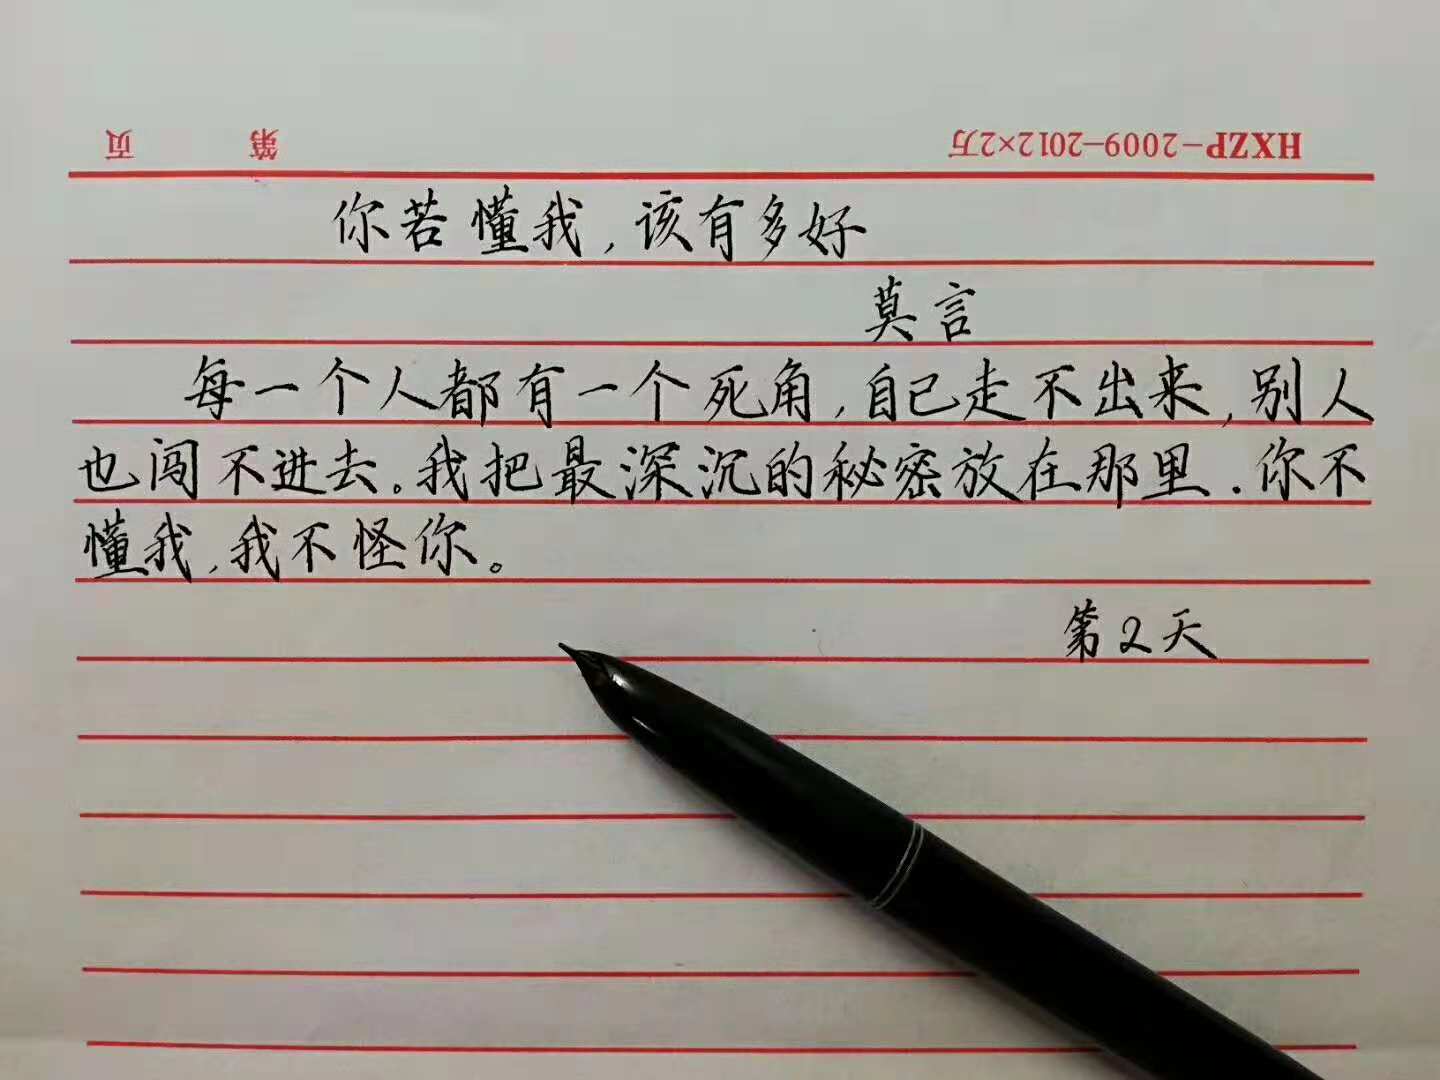 HXZP-2009-2012×2万 第 页
你若懂我，该有多好
莫言
每一个人都有一个死角，自己走不出来，别人
也闯不进去。我把最深沉的秘密放在那里.你不
懂我，我不怪你。
第2天